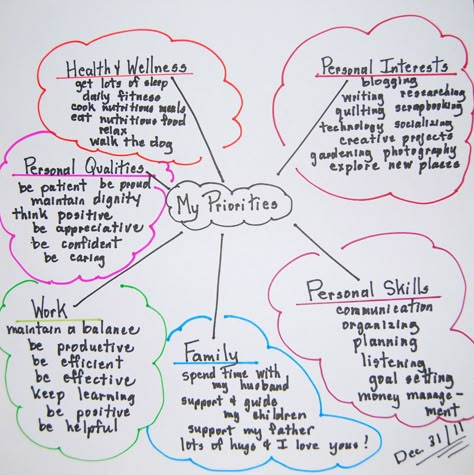 Health & Wellness
get lots of sleep
daily fitness
cook nutritious meals
eat nutritious food
relax
walk the dog
Personal Interests
blogging
writing researching
quilting scrapbooking
technology socializing
creative projects
gardening photography
explore new places
Personal Qualities
be patient be proud
maintain dignity
think positive
be appreciative
be confident
be caring
My Priorities
Work
maintain a balance
be productive
be efficient
be effective
keep learning
be positive
be helpful
Family
spend time with
my husband
support & guide
my children
support my father
lots of hugs & I love yous!
Personal Skills
communication
organizing
planning
listening
goal setting
money manage-
ment
Dec 31/11